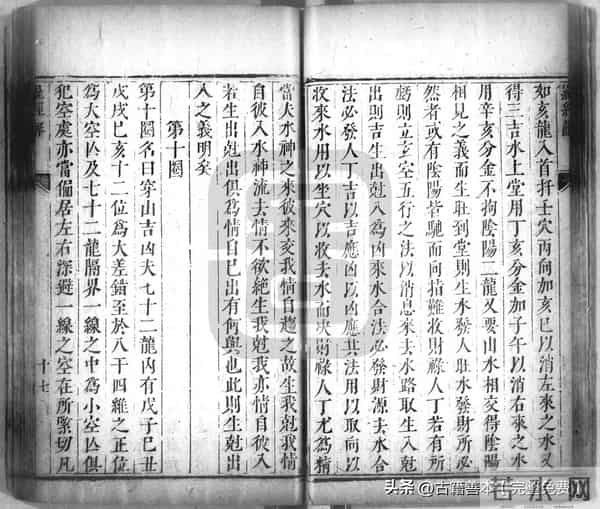 如亥龍入首扦壬穴丙向加亥巳以消左來之水又
得三吉水上堂用丁亥分金加子午以消右來之水
用辛亥分金不拘陰陽二龍又要山水相交得陰陽
相見之義而生旺到堂則生水發人旺水發財所必
然者或有陰陽皆馳而向指難收財祿人丁若有所
虧則立玄空五行之法以消息來去水路取生入尅
出則吉生出尅入為凶來水合法必發財源去水合
法必發人丁吉以吉應凶以凶應其法用以取向以
收來水用以坐穴以收去水而决財祿人丁尤為精
當夫水神之來彼來交我情自趨之故生我尅我情
自彼入水神流去情不欲絶生我尅我亦情自彼入
若生出尅出俱為情自巳出有何與也此則生尅出
入之義明矣
第十圈
第十圈名曰穿山吉凶夫七十二龍內有戊子巳丑
戊戌巳亥十二位為大差錯至於八干四維之正位
為大空亾及七十二龍界一線之中為小空亾俱
犯空處亦當偏居左右深避一線之空在所緊切凡
十七
头条 @古籍善本完整免费